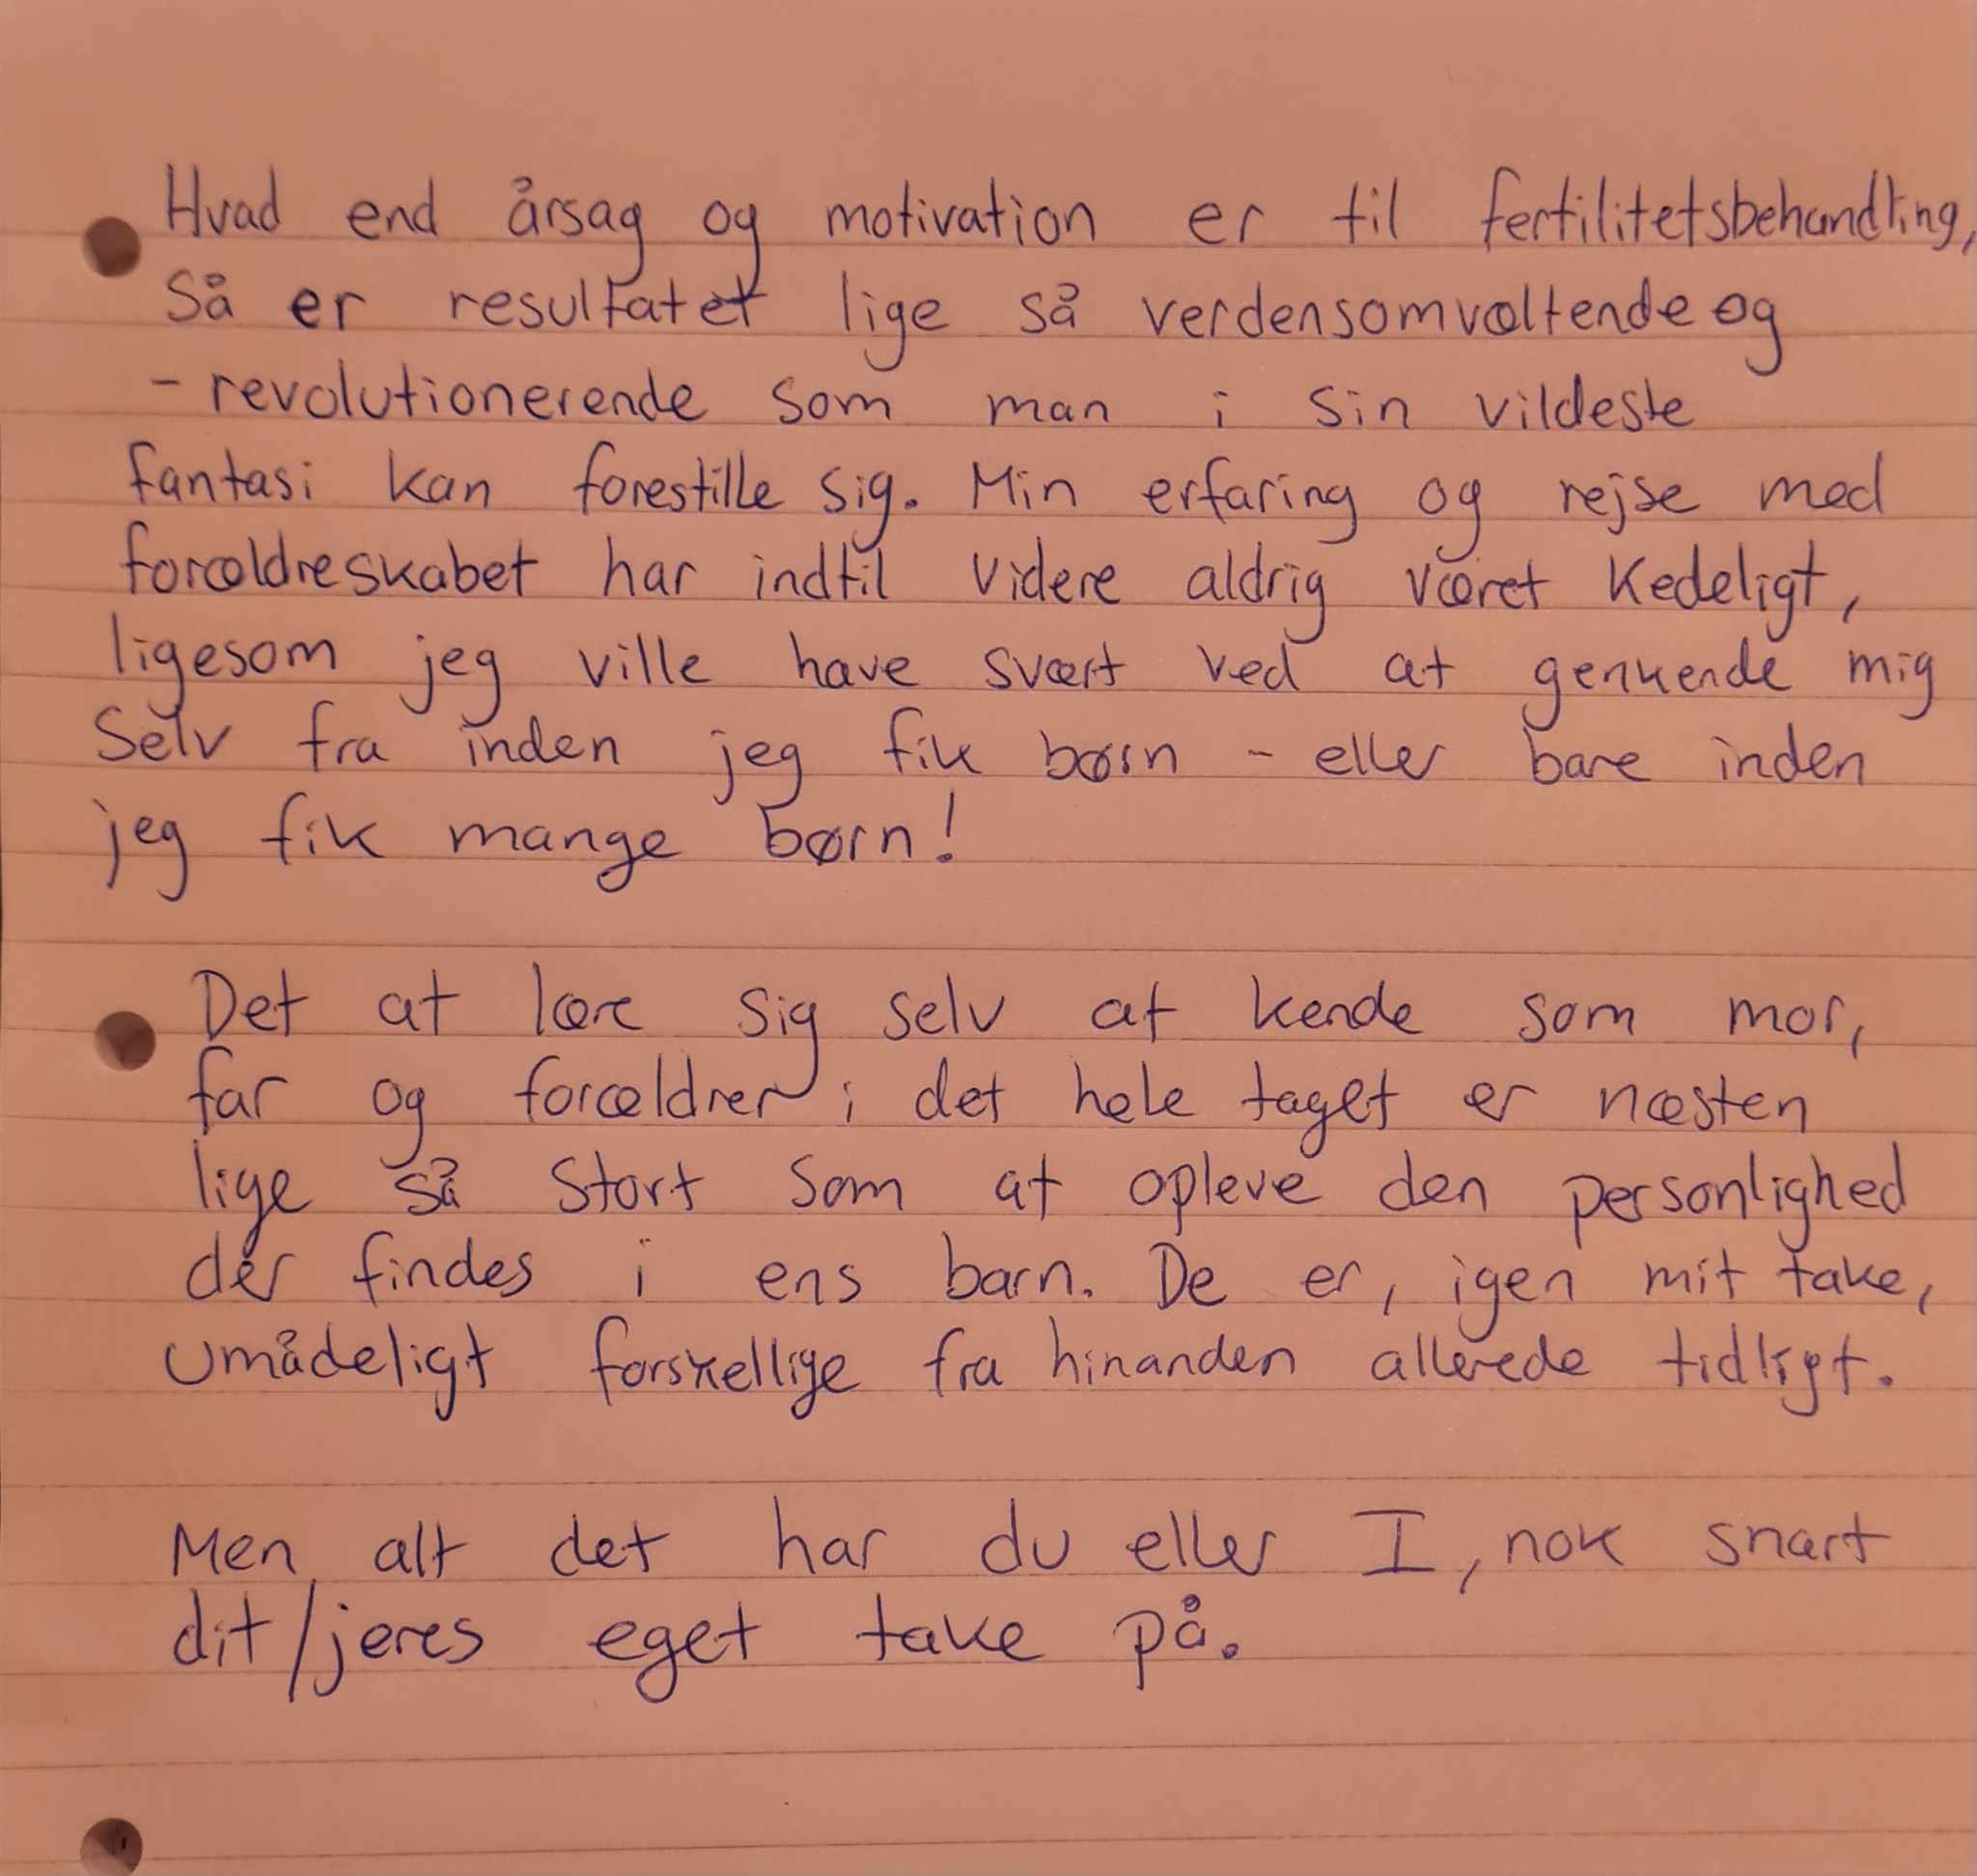 Hvad end årsag og motivation er til fertilitetsbehandling,
så er resultatet lige så verdensomvæltende og
-revolutionerende som man i sin vildeste
fantasi kan forestille sig. Min erfaring og rejse med
forældreskabet har indtil videre aldrig været kedeligt,
ligesom jeg ville have svært ved at genkende mig
selv fra inden jeg fik børn - eller bare inden
jeg fik mange børn!
Det at lære sig selv at kende som mor,
far og forældrer i det hele taget er næsten
lige så stort som at opleve den personlighed
der findes i ens barn. De er, igen mit take,
umådeligt forskellige fra hinanden allerede tidligt.
Men alt det har du eller I, nok snart
dit/jeres eget take på.